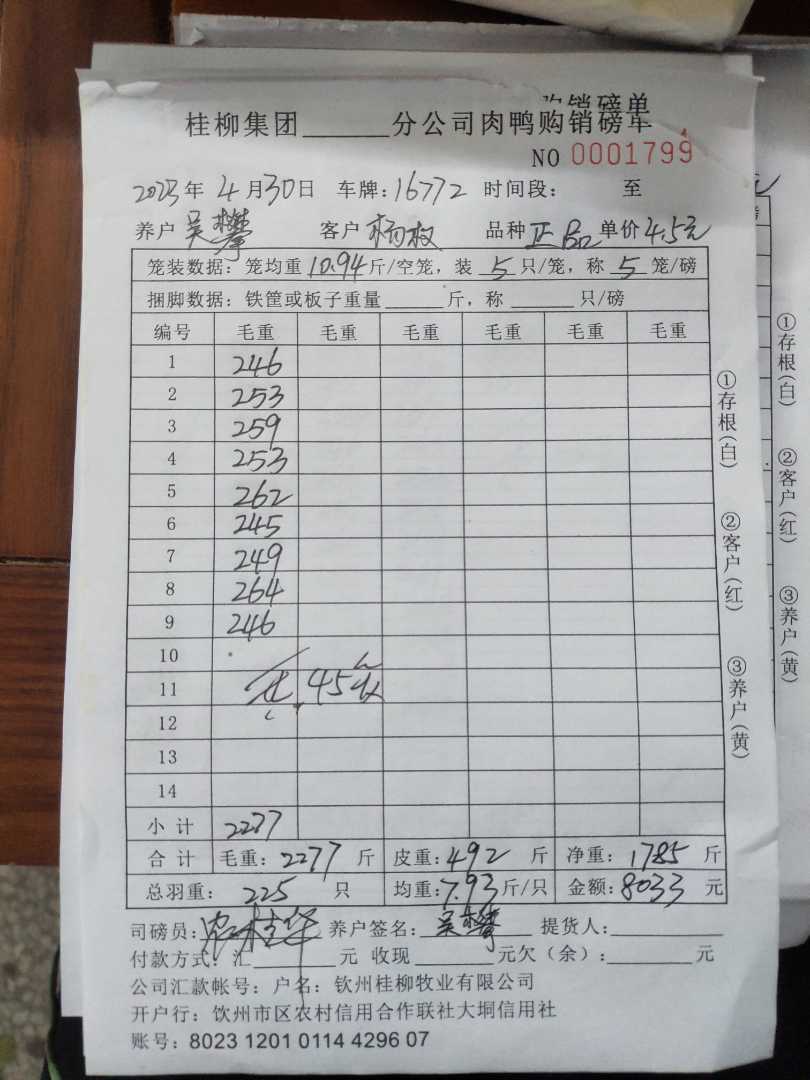 购销磅单
桂柳集团______分公司肉鸭购销磅单
NO 0001799
2023年 4月30日 车牌:16772 时间段: 至
养户 吴攀 客户 杨权 品种 正品 单价 4.5元
笼装数据:笼均重 10.94 斤/空笼,装 5 只/笼,称 5 笼/磅
捆脚数据:铁筐或板子重量______斤,称______只/磅
编号 毛重 毛重 毛重 毛重 毛重 毛重
1 246
2 253
3 259
4 253
5 262
6 245
7 249
8 264
9 246
10
11 45
12
13
14
小计 2277
合计 毛重:2277 斤 皮重:492 斤 净重:1785 斤
总羽重: 225 只 均重:7.93 斤/只 金额:8033 元
司磅员: 养户签名: 吴攀 提货人:
付款方式:汇______元 收现______元欠(余):______元
公司汇款帐号:户名:钦州桂柳牧业有限公司
开户行:饮州市区农村信用合作联社大垌信用社
账号:8023 1201 0114 4296 07
①存根(白) ②客户(红) ③养户(黄)
①存根(白) ②客户(红) ③养户(黄)